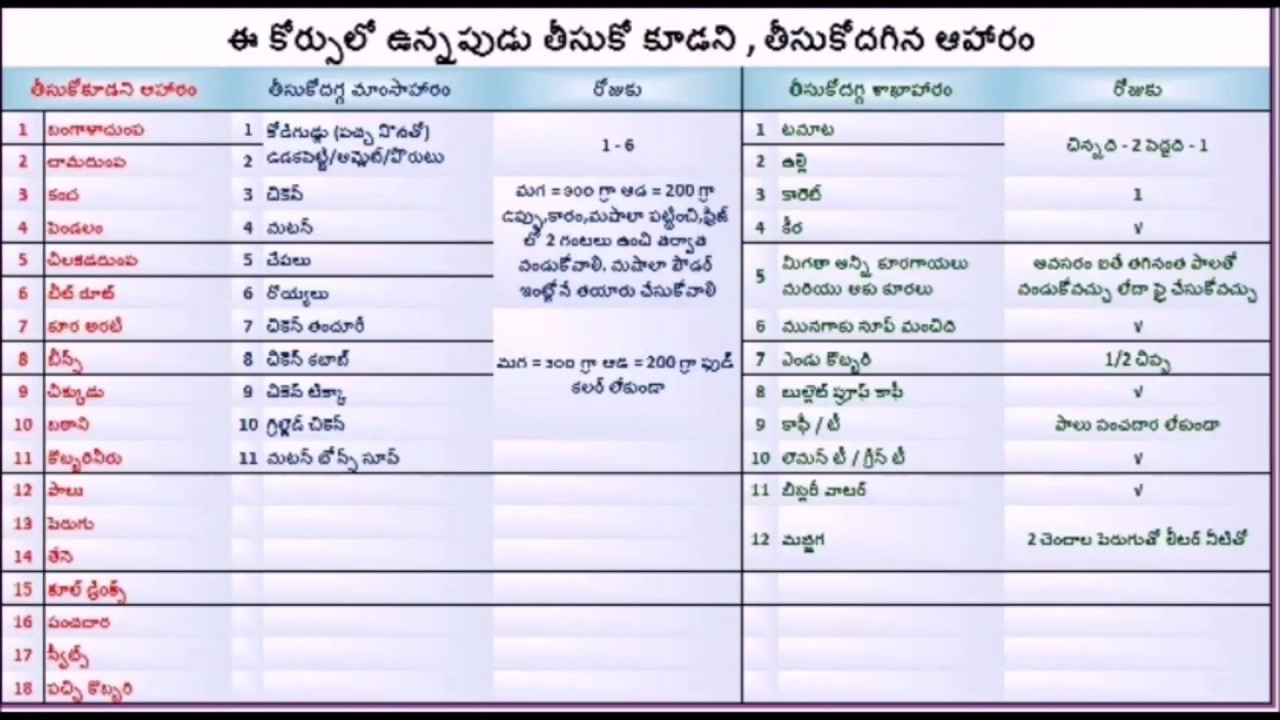 ఈ కోర్సులో ఉన్నపుడు తీసుకో కూడని , తీసుకోదగిన ఆహారం
తీసుకోకూడని ఆహారం తీసుకోదగ్గ మాంసాహారం రోజుకు తీసుకోదగ్గ శాఖాహారం రోజుకు
1 బంగాళాదుంప 1 కోడిగుడ్లు (పచ్చ సొనతో) 1 టమాట
ఉడకపెట్టి/ఆమ్లెట్/పొరుటు 1 - 6 చిన్నది - 2 పెద్దది - 1
2 చామదుంప 2 2 ఉల్లి
3 కంద 3 చికెన్ మగ = 300 గ్రా ఆడ = 200 గ్రా 3 కారెట్ 1
ఉప్పు,కారం,మషాలా పట్టించి,ఫ్రిజ్
4 పెండలం 4 మటన్ లో 2 గంటలు ఉంచి తర్వాత 4 కీర √
5 చిలకడదుంప 5 చేపలు వండుకోవాలి. మషాలా పౌడర్ 5 మిగతా అన్ని కూరగాయలు అవసరం ఐతే తగినంత పాలతో
6 బీట్ రూట్ 6 రొయ్యలు ఇంట్లోనే తయారు చేసుకోవాలి మరియు ఆకు కూరలు వండుకోవచ్చు లేదా ఫ్రై చేసుకోవచ్చు
7 కూర అరటి 7 చికెన్ తందూరీ 6 మునగాకు సూప్ మంచిది √
8 బీన్స్ 8 చికెన్ కబాబ్ మగ = 300 గ్రా ఆడ = 200 గ్రా ఫుడ్ 7 ఎండు కొబ్బరి 1/2 చిప్ప
9 చిక్కుడు 9 చికెన్ టిక్కా కలర్ లేకుండా 8 బుల్లెట్ ప్రూఫ్ కాఫీ √
10 బఠాని 10 గ్రిల్డ్ చికెన్ 9 కాఫీ / టీ పాలు పంచదార లేకుండా
11 కొబ్బరినీరు 11 మటన్ బోన్స్ సూప్ 10 లెమన్ టీ / గ్రీన్ టీ √
12 పాలు 11 బిస్లరీ వాటర్ √
13 పెరుగు
12 మజ్జిగ 2 చెంచాల పెరుగుతో లీటర్ నీటితో
14 తేనె
15 కూల్ డ్రింక్స్
16 పంచదార
17 స్వీట్స్
18 పచ్చి కొబ్బరి